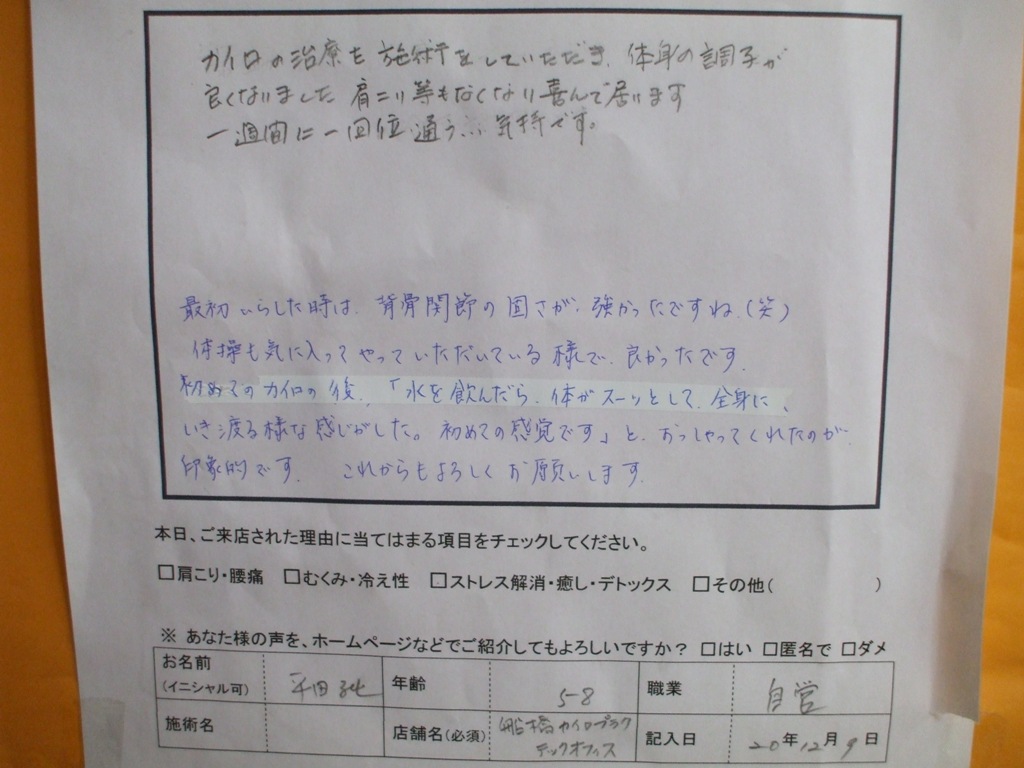 カイロの治療を施術をしていただき、体身の調子が
良くなりました 肩こり等もなくなり喜んで居ります
一週間に一回位通う 気持です。
最初いらした時は、背骨関節の固さが、強かったですね。(笑)
体操も気に入ってやっていただいている様で、良かったです。
初めてのカイロの後、「水を飲んだら、体がスーッとして、全身に、
いき渡る様な感じがした。初めての感覚です」と、おっしゃってくれたのが、
印象的です。 これからもよろしくお願いします。
本日、ご来店された理由に当てはまる項目をチェックしてください。
□肩こり・腰痛 □むくみ・冷え性 □ストレス解消・癒し・デトックス □その他( )
※ あなた様の声を、ホームページなどでご紹介してもよろしいですか? □はい □匿名で □ダメ
お名前
(イニシャル可) 平田 年齢 58 職業 自営
施術名 店舗名(必須) 船橋カイロプラク
ティックオフィス 記入日 20年12月9日